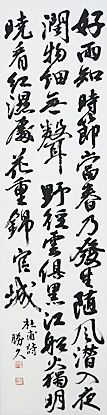 好雨知時節當春乃發生隨風潜入夜
潤物細無聲野徑雲俱黑江船火獨明
曉看紅濕處花重錦官城
杜甫詩
勝久